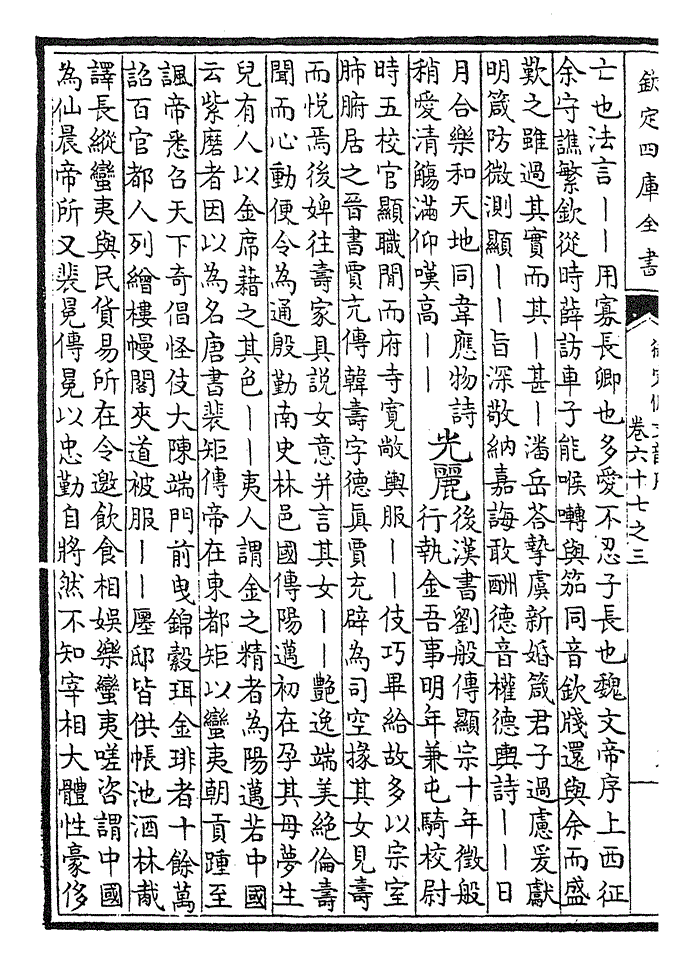 欽定四庫全書
卷六十七之三
亡也法言丨丨用寡長卿也多愛不忍子長也魏文帝序上西征
余守譙繁欽從時薛訪車子能喉囀與笳同音欽牋還與余而盛
歎之雖過其實而其丨甚丨潘岳荅摯虞新婚箴君子過慮爰獻
明箴防微測顯丨丨旨深敬納嘉誨敢酬德音權德輿詩丨丨日
月合樂和天地同韋應物詩
稍愛清觴滿仰嘆高丨丨
光麗
後漢書劉般傳顯宗十年徵般
行執金吾事明年兼屯騎校尉
時五校官顯職閒而府寺寬敞輿服丨丨伎巧畢給故多以宗室
肺腑居之晉書賈充傳韓壽字德真賈充辟為司空掾其女見壽
而悅焉後婢往壽家具說女意并言其女丨丨艷逸端美絕倫壽
聞而心動便令為通殷勤南史林邑國傳陽邁初在孕其母夢生
兒有人以金席藉之其色丨丨夷人謂金之精者為陽邁若中國
云紫磨者因以為名唐書裴矩傳帝在東都矩以蠻夷朝貢踵至
諷帝悉召天下奇倡怪伎大陳端門前曳錦縠珥金琲者十餘萬
詔百官都人列繒樓幔閣夾道被服丨丨廛邸皆供帳池酒林胾
譯長縱蠻夷與民貨易所在令邀飲食相娛樂蠻夷嗟咨謂中國
為仙晨帝所又裴冕傳冕以忠勤自將然不知宰相大體性豪侈